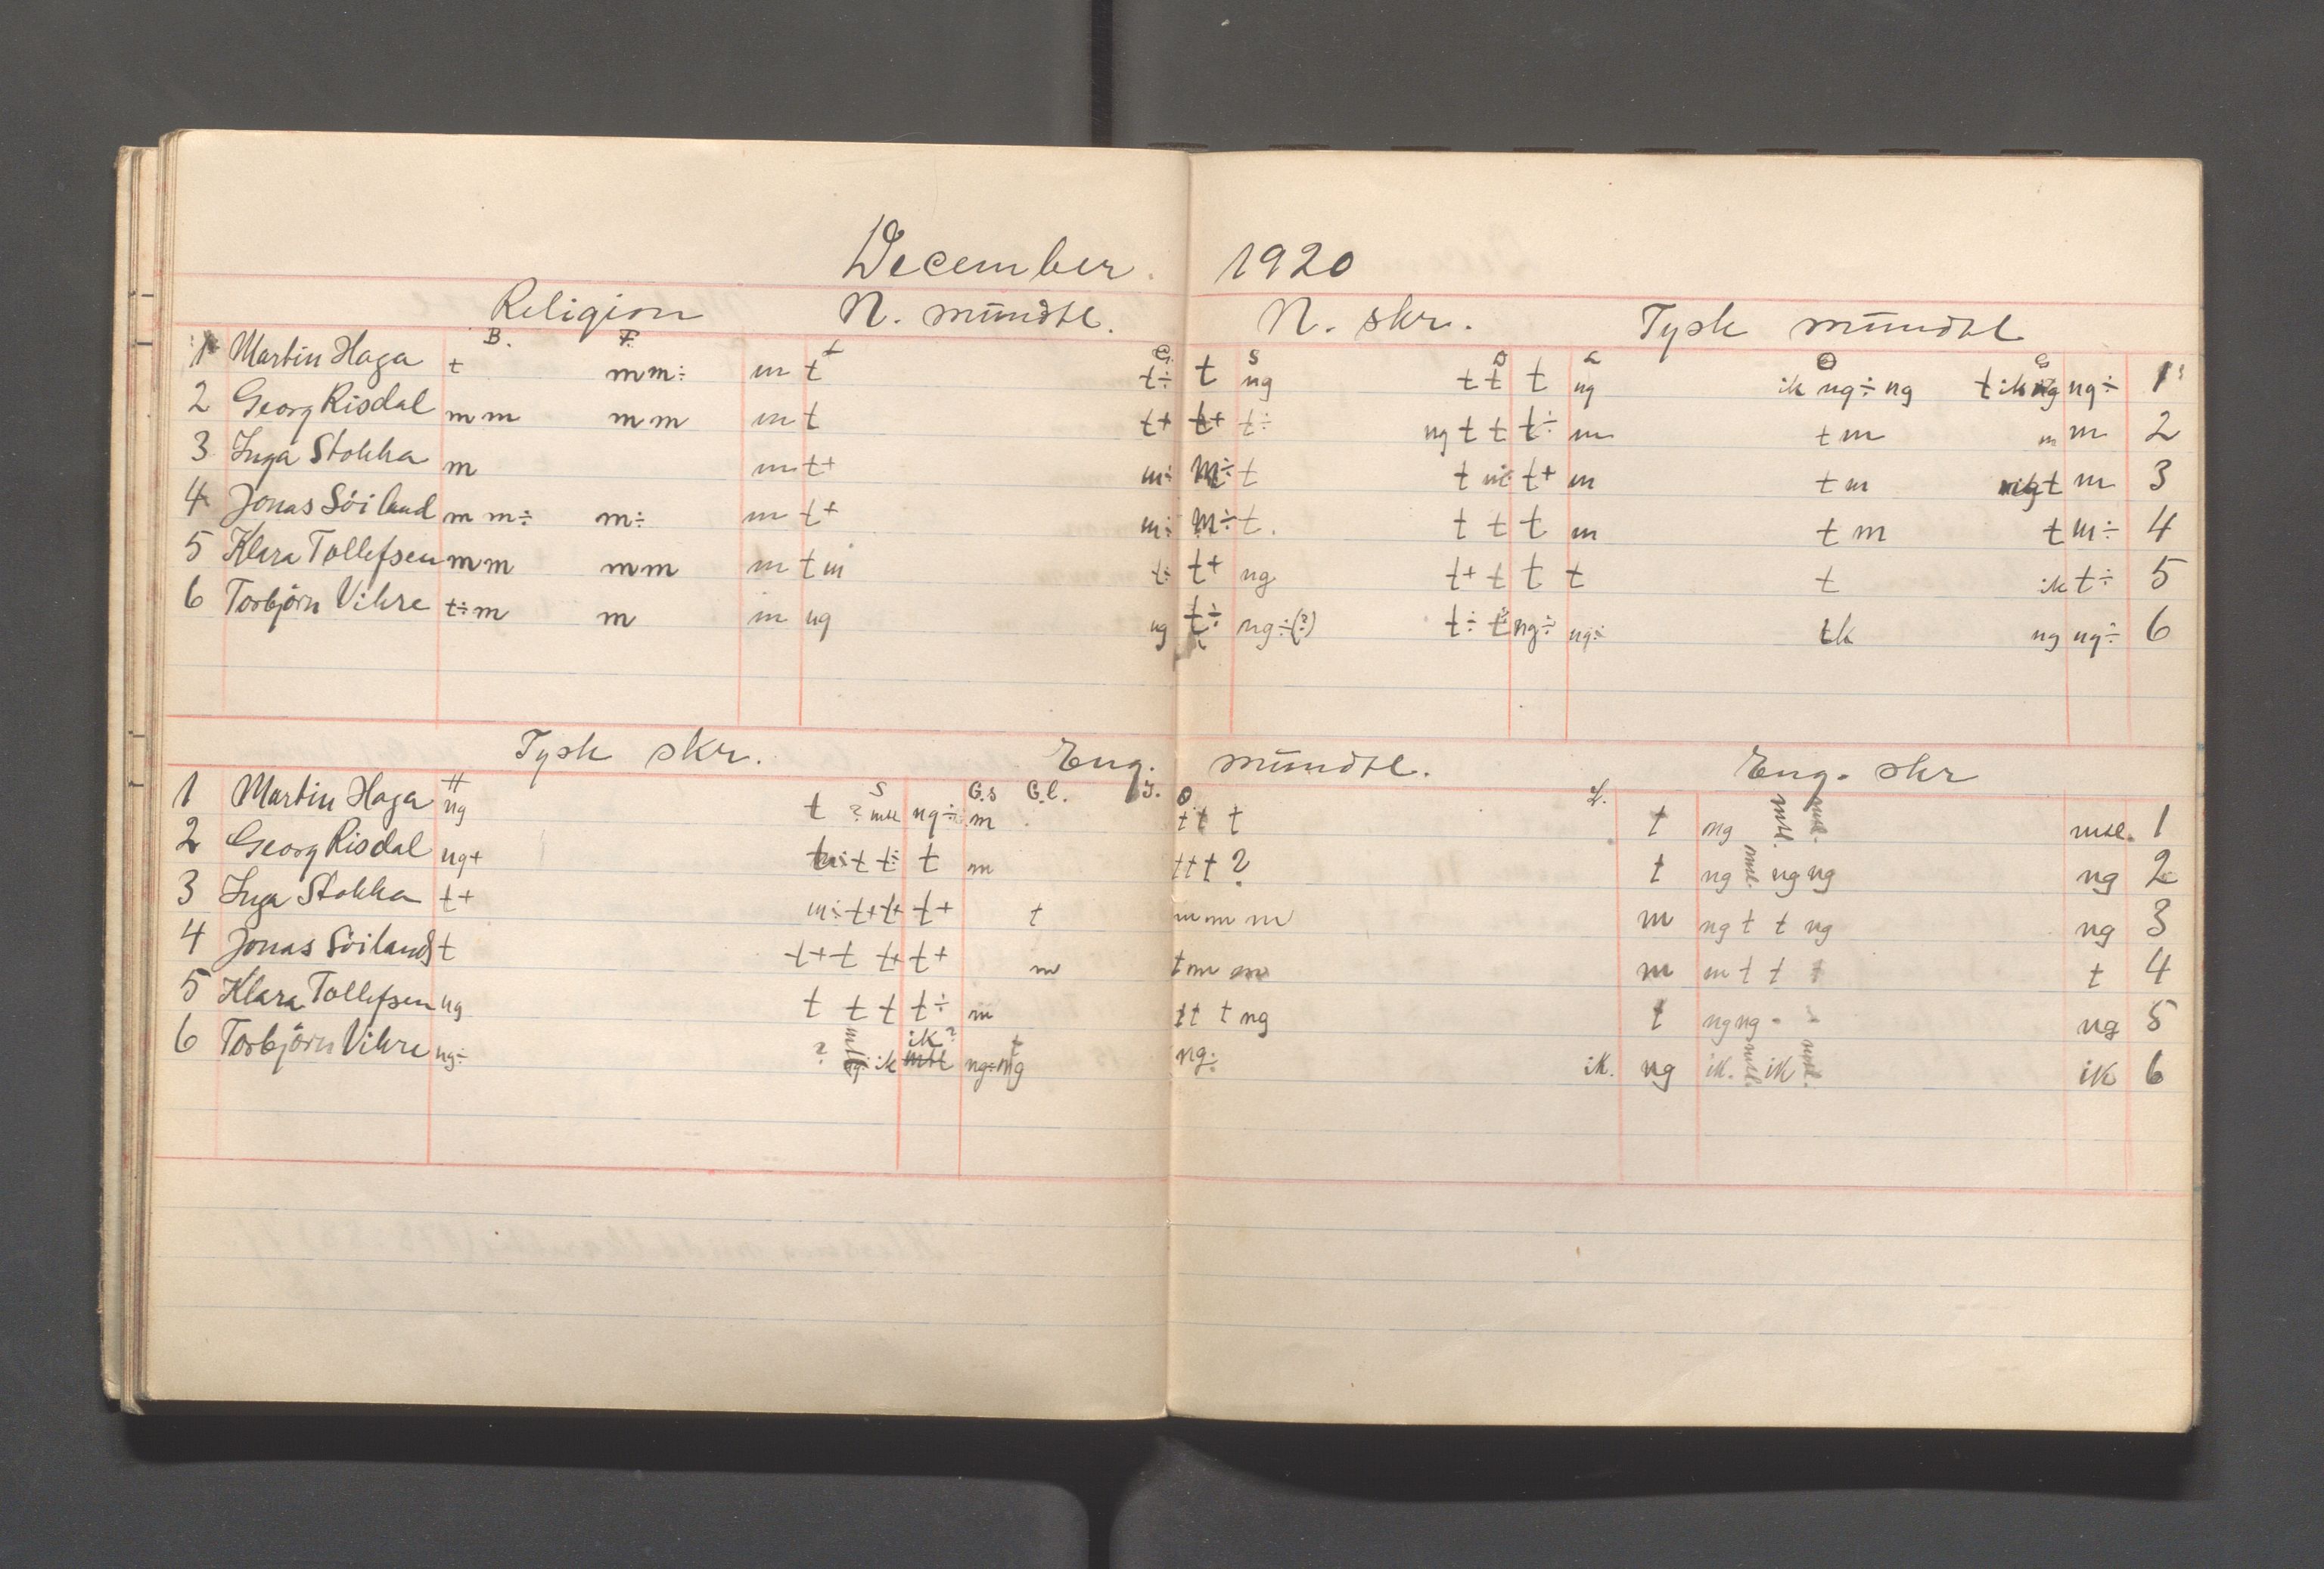 December. 1920
Religion N. mündtl. N. skr. Tysk mündtl
B. F. G. S O L O G
1 Martin Haga t mm÷ m t t÷ t ng t t t ng ik ng÷ ng t ik ng÷ 1
2 Georg Risdal m m m m m t t+ t+ t÷ ng t t t÷ m t m m m 2
3 Inga Stokka m m t+ m÷ m÷ t t t+ m t m t m 3
4 Jonas Söiland m m÷ m÷ m t+ m÷ m÷ t. t t t m t m t m÷ 4
5 Klara Tollefsen m m m m m t m t÷ t+ ng t+ t t t t ik t÷ 5
6 Torbjörn Vikre t÷ m m m ng ng t÷ ng÷(?) t÷ t ng÷ ng÷ ng ng÷ 6
Tysk skr. Eng. mündtl. Eng. skr
H S G.s G.l. J. O L.
1 Martin Haga ng t ? mtl ng÷ m t t t t ng mtl. mtl. mtl. 1
2 Georg Risdal ng+ t t÷ t m t t t ? t ng mtl. ng ng ng 2
3 Inga Stokka t+ m÷ t+ t+ t+ t m m m m ng t t ng ng 3
4 Jonas Söiland t t+ t t+ t+ m t m m m m t t t t 4
5 Klara Tollefsen ng t t t t÷ m t t t ng t ng ng - - ng 5
6 Torbjörn Vikre ng÷ ? mtl ik ik? mtl ng÷ ng ng÷ ik. ng ik. mtl. ik mtl. ik 6